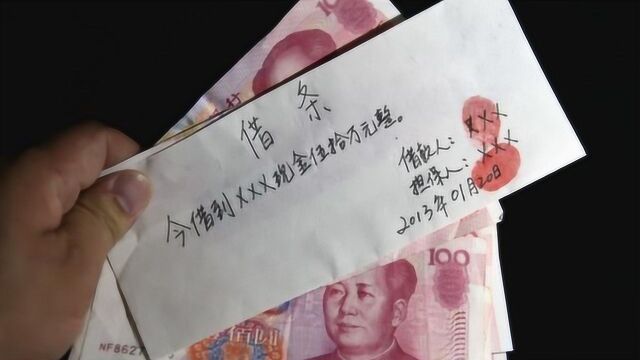 借条
今借到XXX现金伍拾万元整。
借款人:XXX
担保人:XXX
2013年01月20日
100